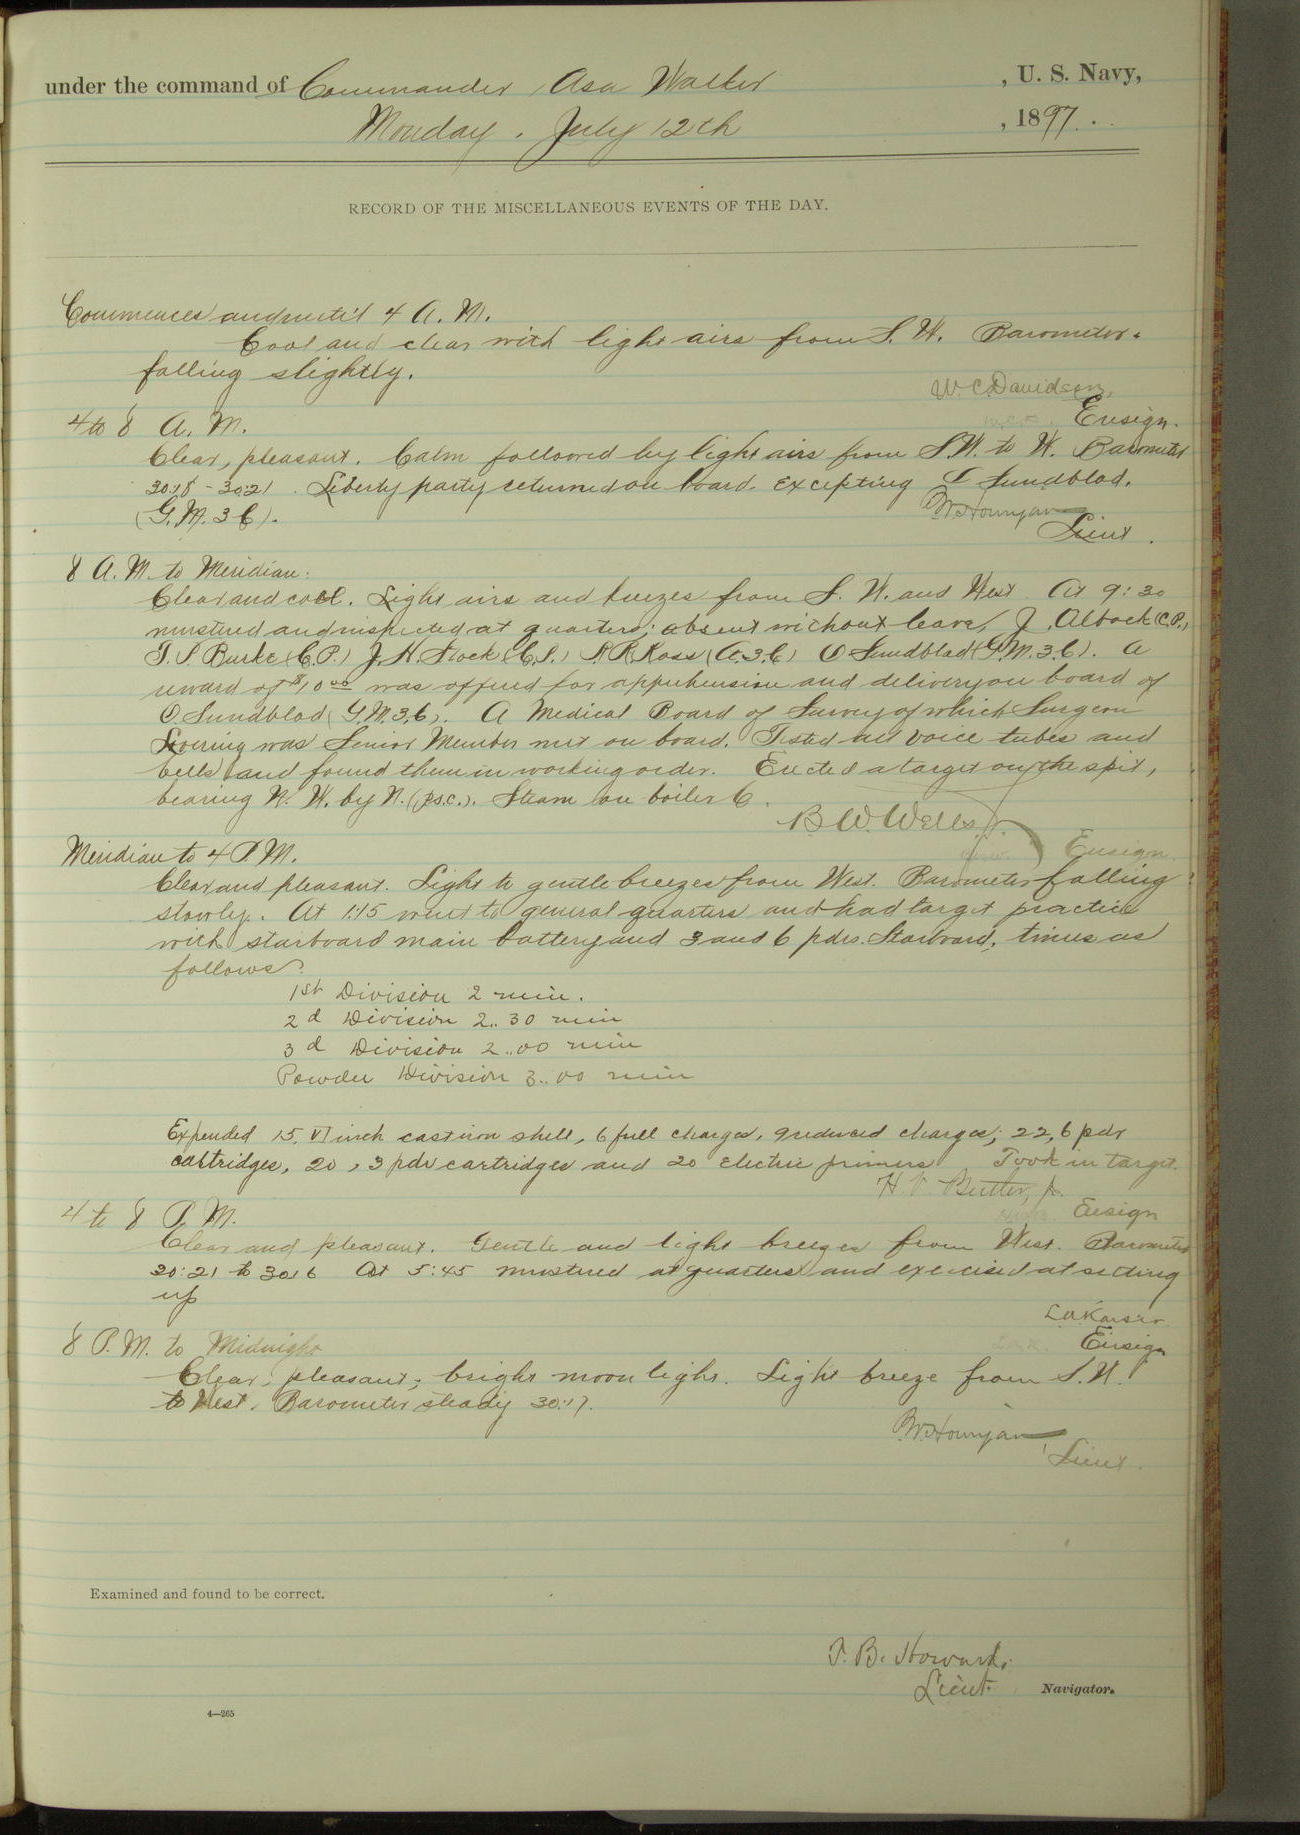 under the command of Commander Asa Walker , U. S. Navy,
Monday, July 12th , 1897.
RECORD OF THE MISCELLANEOUS EVENTS OF THE DAY.
Commences and until 4 A. M.
Cool and clear with light airs from S. W. Barometer
falling slightly.
W. C. Davidson,
Ensign.
4 to 8 A. M.
Clear, pleasant. Calm followed by light airs from S.W. to W. Barometer
30:18 - 30:21. Liberty party returned on board. excepting Sundblad.
(G. M. 3 C).
Lieut.
8 A. M. to Meridian:
Clear and cool. Light airs and breezes from S. W. and West At 9:30
mustered and inspected at quarters; absent without leave, J. (C.P.)
T. S. Burke (C.P.) J. H. (C.P.) R. R. Ross (A.3.C) O Sundblad (G.M.3.C). A
reward of $10 00 was offered for apprehension and delivery on board of
O. Sundblad (G.M.3.C). A Medical Board of Survey of which Surgeon
was Senior Member met on board. Tested all voice tubes and
bells and found them in working order. Erected a target on the spit,
bearing N. W. by N. (p.s.c.). Steam on boiler C.
B. W. Wells Jr.
Ensign
Meridian to 4 P. M.
Clear and pleasant. Light to gentle breezes from West. Barometer falling
slowly. At 1:15 went to general quarters and had target practice
with starboard main battery and 3 and 6 pdrs. Starboard, times as
follows:
1st Division 2 min.
2d Division 2..30 min
3d Division 2..00 min
Powder Division 3..00 min
Expended 15, VI inch cast iron shell, 6 full charges, 9 reduced charges; 22, 6 pdr
cartridges, 20, 3 pdr cartridges and 20 electric primers Took in target.
H. V. Butler, Jr.
Ensign
4 to 8 P. M.
Clear and pleasant. Gentle and light breezes from West. Barometer
30:21 to 30.16 At 5:45 mustered at quarters and exercised at setting
up
L. A. Kaiser
Ensign
8 P. M. to Midnight
Clear, pleasant; bright moon light. Light breeze from S. W.
to West. Barometer steady 30:17.
Lieut.
Examined and found to be correct.
T. B. Howard,
Lieut. Navigator.
4—265